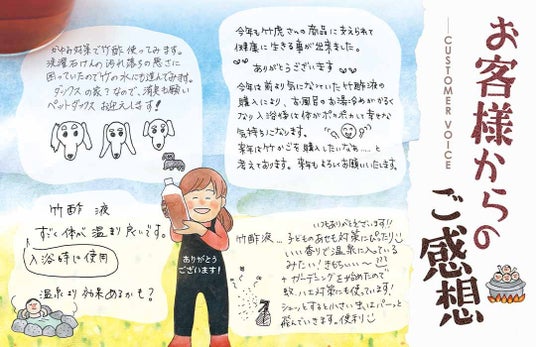 お客様からの
ご感想
CUSTOMER VOICE
かゆみ対策で竹酢使ってみます。
洗濯石けんの汚れ落ちの悪さに
困っていたので竹の水にも進んでみます。
ダックスの家？なので、消臭も願い
ペットダックス お迎えします！
今年も竹虎さんの商品に支えられて
健康に生きる事が出来ました。
ありがとうございます
今年は前より気になっていた竹酢液の
購入により、お風呂のお湯冷めがなく
なり入浴後は体がポッポッして幸せな
気持ちになります。
来年は竹かごを購入したいなぁ……と
考えております。来年もよろしくお願いいたします。
竹酢液
すごく体が温まり良いです。
入浴時に使用
温泉より効果あるかも？
ありがとう
ございます！
いつもありがとうございます!!
竹酢液…子どものあせも対策にぴったり
いい香りで温泉に入っている
みたい！きもちいい〜
+ガーデニングを始めたので
蚊、ハエ対策にも使っています！
シュッとすると小さい虫はパーッと
飛んでいきます。便利